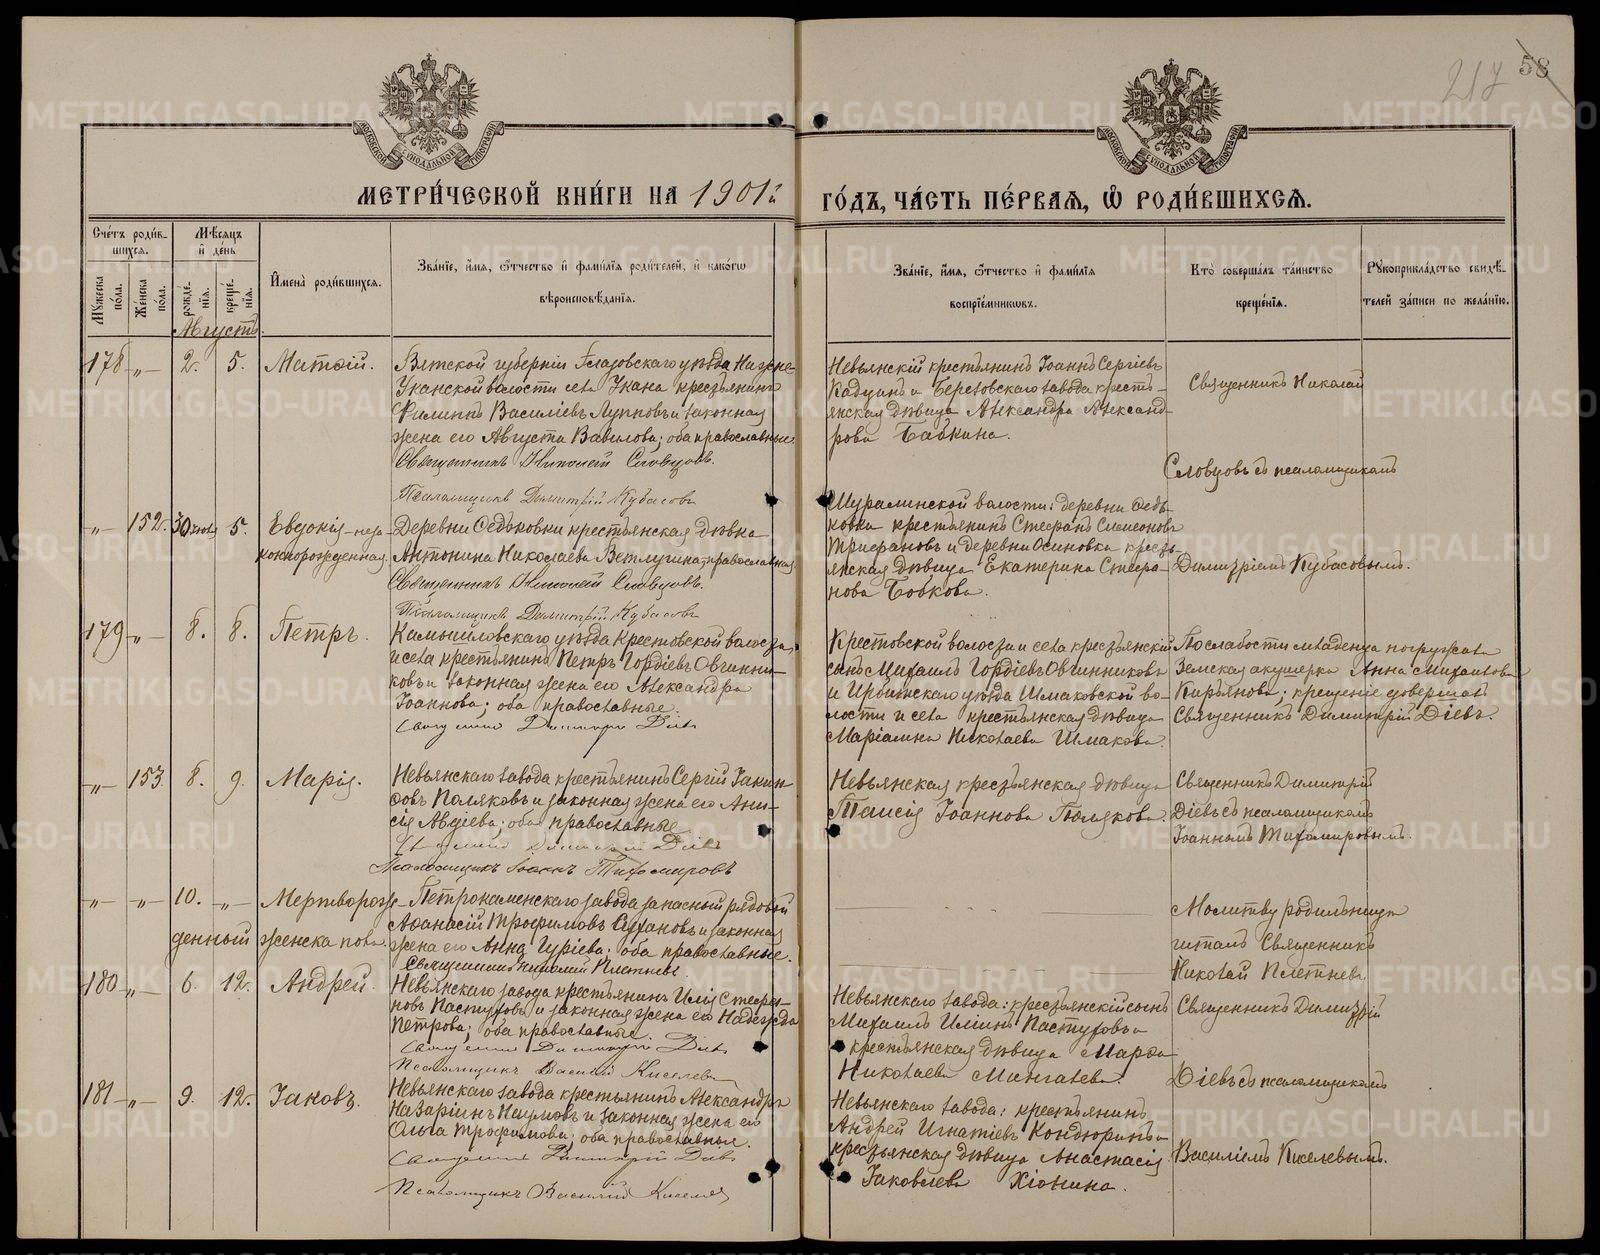 217
58
МОСКОВСКОЙ СѴНОДАЛЬНОЙ ТИПОГРАФІИ
МОСКОВСКОЙ СѴНОДАЛЬНОЙ ТИПОГРАФІИ
МЕТРИ́ЧЕСКОЙ КНИ́ГИ НА 1901й
ГО́ДЪ, ЧА́СТЬ ПЕ́РВАѦ, Ѡ҆ РОДИ́ВШИХСѦ.
Сче́тъ роди́в-
шихся.
Мѣ́сяцъ
и҆ де́нь
Мꙋ́жеска по́ла.
Же́нска по́ла.
рожде́-нїя.
креще́-нїя.
И҆мена̀ роди́вшихся.
Зва́нїе, и҆́мя, ѻ҆́тчество и҆ фами́лїя роди́телей, и҆ како́гѡ
вѣроисповѣ́данїя.
Зва́нїе, и҆́мя, ѻ҆́тчество и҆ фами́лїя
воспрїе́мникѡвъ.
Кто̀ соверша́лъ та́инство
креще́нїя.
Рꙋкоприкла́дство свидѣ́-
телей за́писи по жела́нїю.
Августъ.
178 -„- 2. 5. Матѳій.
Вятской губерніи Глазовскаго уѣзда Нижне-
Уканской волости села Укана крестьянинъ
Филиппъ Василіевъ Лупповъ и законная
жена его Августа Вавилова; оба православные.
Священникъ Николай Словцовъ.
Псаломщикъ Димитрій Кубасовъ
Невьянскій крестьянинъ Іоаннъ Сергіевъ
и Березовскаго завода кресть-
янская дѣвица Александра Александ-
рова Бабкина.
Священникъ Николай
Словцовъ съ псаломщикомъ
-„- 152. 30 іюля 5. Евдокія - неза-
коннорожденная.
Деревни Федьковки крестьянская дѣвка
Антонина Николаева Ветлугина; православная.
Священникъ Николай Словцовъ.
Псаломщикъ Димитрій Кубасовъ
Шуралинской волости: деревни Федь-
ковки крестьянинъ Стефанъ Симеоновъ
Трифановъ и деревни Осиновки кресть-
янская дѣвица Екатерина Стефа-
нова Бобкова.
Димитріемъ Кубасовымъ.
179 -„- 8. 8. Петръ.
Камышловскаго уѣзда Крестовской волости
и села крестьянинъ Петръ Гордіевъ Овчинни-
ковъ и законная жена его Александра
Іоаннова; оба православные.
Священникъ Димитрій Діевъ
Крестовской волости и села крестьянскій
сынъ Михаилъ Гордіевъ Овчинниковъ
и Ирбитскаго уѣзда Шмаковской во-
лости и села крестьянская дѣвица
Маріамна Николаева Шмакова.
По слабости младенца погружала
Земская акушерка Анна Михайлова
Кирьянова; крещеніе довершалъ
Священникъ Димитрій Діевъ.
-„- 153 8. 9. Марія.
Невьянскаго завода крестьянинъ Сергій Іакин-
ѳовъ Поляковъ и законная жена его Ани-
сія Авдіева; оба православные
Священникъ Димитрій Діевъ
Псаломщикъ Іоаннъ Тихомировъ
Невьянская крестьянская дѣвица
Таисія Іоаннова Полякова.
Священникъ Димитрій
Діевъ съ псаломщикомъ
Іоанномъ Тихомировымъ.
-„- -„- 10. -„- Мертворож-
денный женска пола.
Петрокаменскаго завода запасный рядовой
Аѳанасій Трофимовъ Сухановъ и законная
жена его Анна Гуріева; оба православные.
Священникъ Николай Плетневъ.
Молитву родильницѣ
читалъ Священникъ
Николай Плетневъ
180 -„- 6. 12. Андрей.
Невьянскаго завода крестьянинъ Илія Стефа-
новъ Пастуховъ и законная жена его Надежда
Петрова; оба православные
Священникъ Димитрій Діевъ
Псаломщикъ Василій Киселевъ
Невьянскаго завода: крестьянскій сынъ
Михаилъ Иліинъ Пастуховъ и
крестьянская дѣвица Марѳа
Николаева Мингалева.
Священникъ Димитрій
Діевъ съ псаломщикомъ
181 -„- 9. 12. Іаковъ.
Невьянскаго завода крестьянинъ Александръ
Назаріинъ Наумовъ и законная жена его
Ольга Трофимова; оба православные.
Священникъ Димитрій Діевъ
Псаломщикъ Василій Киселевъ
Невьянскаго завода: крестьянинъ
Андрей Игнатіевъ Кондюринъ и
крестьянская дѣвица Анастасія
Іаковлева Хіонина.
Василіемъ Киселевымъ.
METRIKI.GASO-URAL.RU